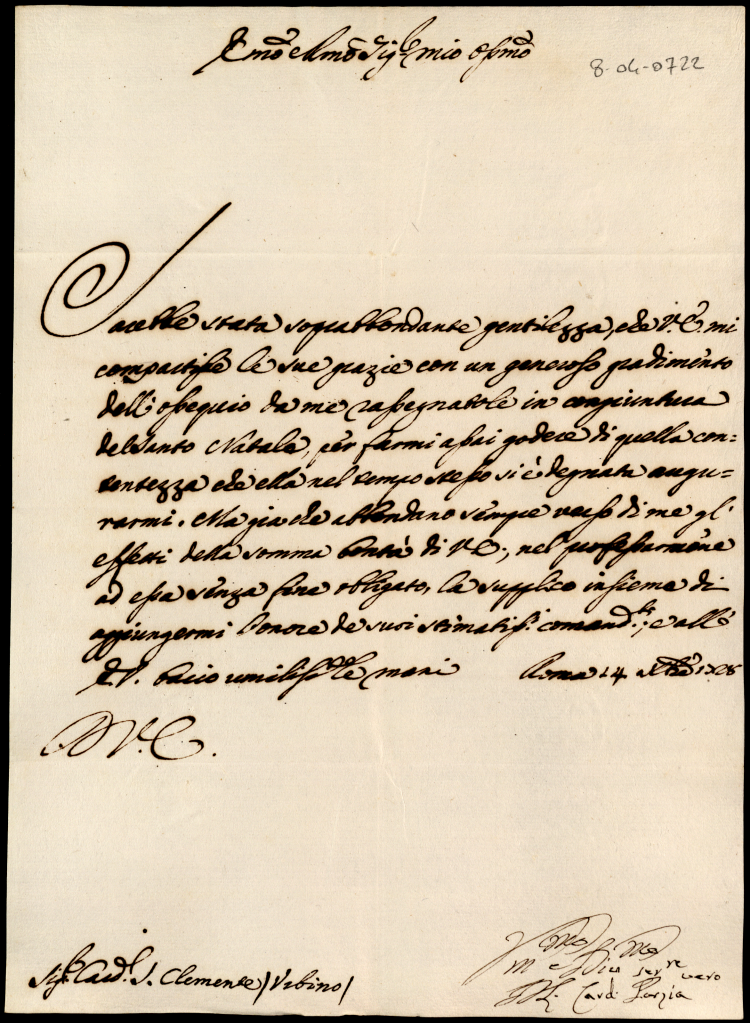 Emo e Rmo Sig.r mio Ossmo
8-04-0722
Sarebbe stata soprabbondante gentilezza, che V.E. mi
compartisse le sue grazie con un generoso gradimento
dell'ossequio da me rassegnatole in congiuntura
del Santo Natale, per farmi assai godere di quella con-
tentezza che ella nel tempo stesso si è degnata augu-
rarmi. Ma gia che abbondano sempre verso di me gl'
effetti della somma bontà di V.E., nel professarmene
ad essa senza fine obligato, la supplico insieme di
aggiungermi l'onore de suoi stimatiss.i comand.ti, e all'
E.V. bacio umilissme le mani Roma 14 Xbre
D V.E.
Sig.r Card.l S. Clemente / Urbino /
Vmo
ser.re vero
Card. Porzia